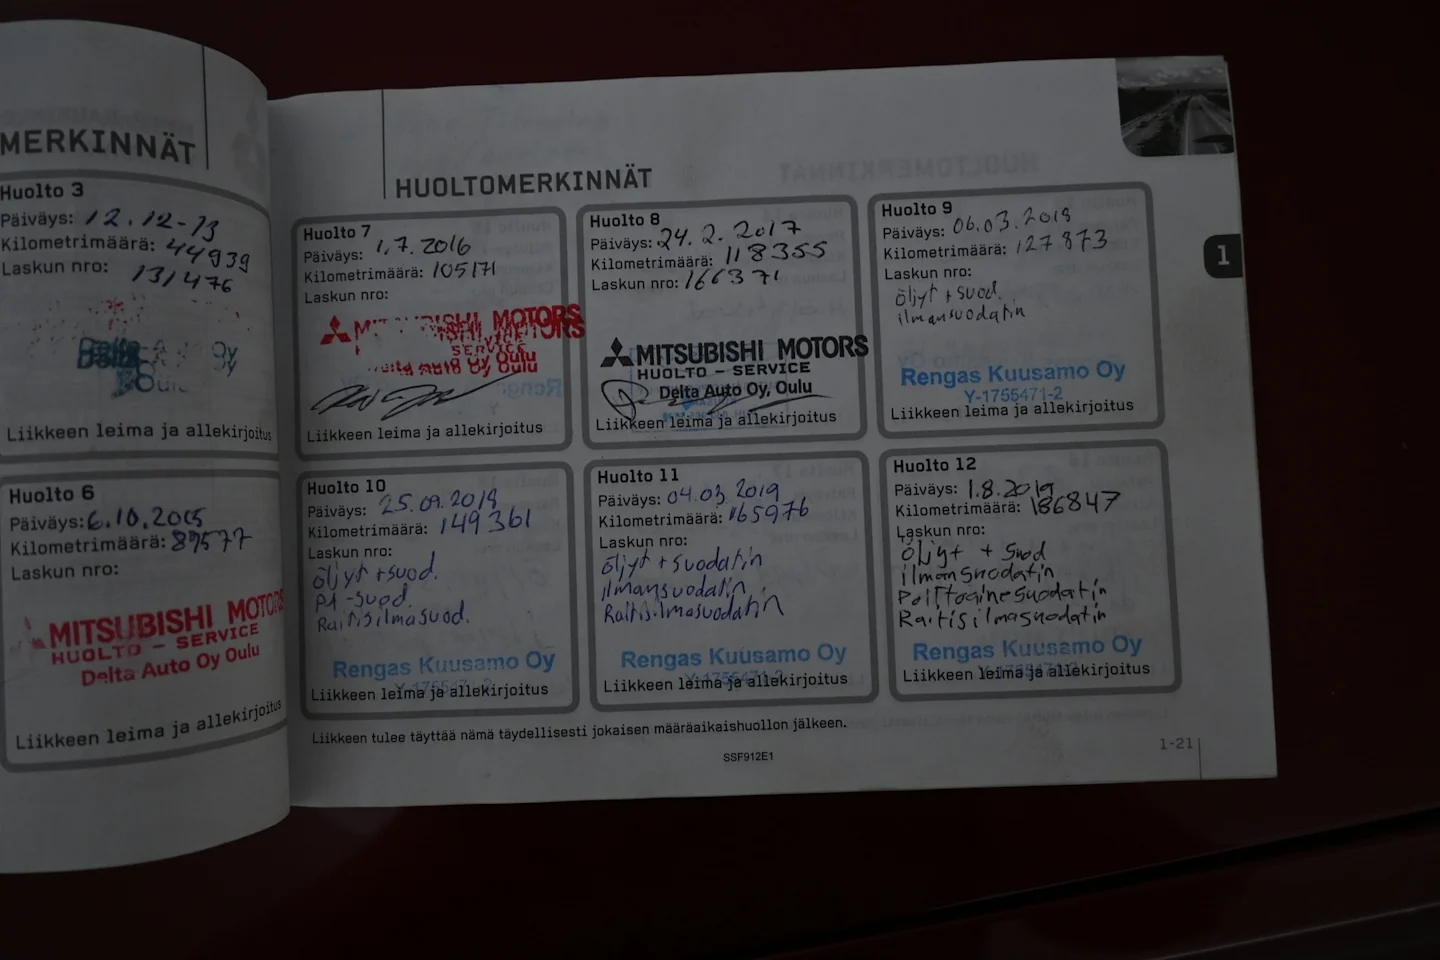 MERKINNÄT
Huolto 3
Päiväys: 12.12-13
Kilometrimäärä: 44939
Laskun nro: 131476
Oy
Oulu
Liikkeen leima ja allekirjoitus
Huolto 6
Päiväys: 6.10.2015
Kilometrimäärä: 89577
Laskun nro:
MITSUBISHI MOTORS
HUOLTO - SERVICE
Delta Auto Oy Oulu
Liikkeen leima ja allekirjoitus
HUOLTOMERKINNÄT
Huolto 7
Päiväys: 1.7.2016
Kilometrimäärä: 105171
Laskun nro:
MITSUBISHI MOTORS
SERVICE
Delta Auto Oy Oulu
Liikkeen leima ja allekirjoitus
Huolto 8
Päiväys: 24.2.2017
Kilometrimäärä: 118355
Laskun nro: 166371
MITSUBISHI MOTORS
HUOLTO - SERVICE
Delta Auto Oy, Oulu
Liikkeen leima ja allekirjoitus
Huolto 9
Päiväys: 06.03.2018
Kilometrimäärä: 127873
Laskun nro:
öljyt + suod.
ilmansuodatin
Rengas Kuusamo Oy
Y-1755471-2
Liikkeen leima ja allekirjoitus
Huolto 10
Päiväys: 25.09.2018
Kilometrimäärä: 149361
Laskun nro:
öljyt + suod.
PA-suod.
Raitisilmasuod.
Rengas Kuusamo Oy
Y-1755471-2
Liikkeen leima ja allekirjoitus
Huolto 11
Päiväys: 04.03.2019
Kilometrimäärä: 165976
Laskun nro:
öljyt + suodatin
ilmansuodatin
Raitisilmasuodatin
Rengas Kuusamo Oy
Y-1755471-2
Liikkeen leima ja allekirjoitus
Huolto 12
Päiväys: 1.8.2019
Kilometrimäärä: 186847
Laskun nro:
öljyt + suod
ilmansuodatin
Polttoainesuodatin
Raitisilmasuodatin
Rengas Kuusamo Oy
Y-1755471-2
Liikkeen leima ja allekirjoitus
Liikkeen tulee täyttää nämä täydellisesti jokaisen määräaikaishuollon jälkeen.
SSF912E1
1
1-21